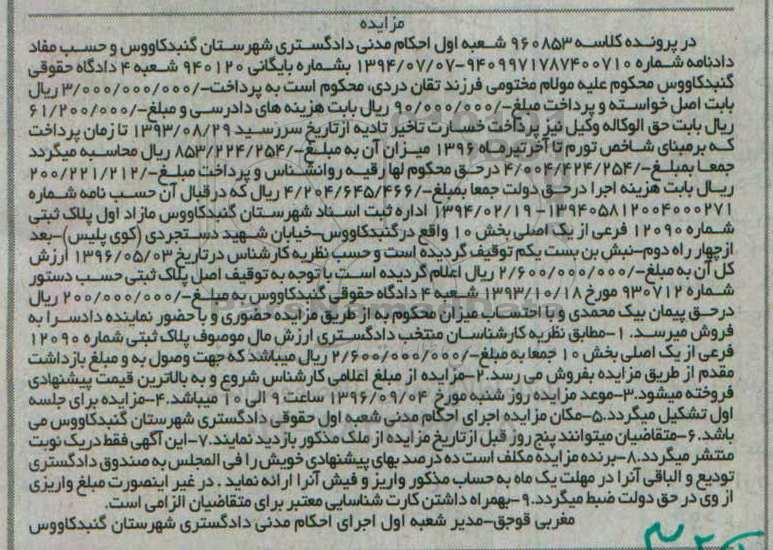 مزایده
در پرونده کلاسه ۹۶۰۸۵۳ شعبه اول احکام مدنی دادگستری شهرستان گنبدکاووس و حسب مفاد
دادنامه شماره ۹۴۰۹۹۷۱۷۸۷۴۰۰۷۱۰-۱۳۹۴/۰۷/۰۷ بشماره بایگانی ۹۴۰۱۲۰ شعبه ۴ دادگاه حقوقی
گنبدکاووس محکوم علیه مولام مختومی فرزند تقان دردی، محکوم است به پرداخت-/۳/۰۰۰/۰۰۰/۰۰۰ ریال
بابت اصل خواسته و پرداخت مبلغ-/۹۰/۰۰۰/۰۰۰ ریال بابت هزینه های دادرسی و مبلغ-/۶۱/۲۰۰/۰۰۰
ریال بابت حق الوکاله وکیل نیز پرداخت خسارت تاخیر تادیه ازتاریخ سررسید ۱۳۹۳/۰۸/۲۹ تا زمان پرداخت
که برمبنای شاخص تورم تا آخرتیرماه ۱۳۹۶ میزان آن به مبلغ-/۸۵۳/۲۲۴/۲۵۴ ریال محاسبه میگردد
جمعا بمبلغ-/۴/۰۰۴/۴۲۴/۲۵۴ درحق محکوم لها رقیه روانشناس و پرداخت مبلغ-/۲۰۰/۲۲۱/۲۱۲
ریال بابت هزینه اجرا درحق دولت جمعا بمبلغ-/۴/۲۰۴/۶۴۵/۴۶۶ ریال که درقبال آن حسب نامه شماره
۱۳۹۴۰۵۸۱۲۰۰۴۰۰۰۲۷۱-۱۳۹۴/۰۲/۱۹ اداره ثبت اسناد شهرستان گنبدکاووس مازاد اول پلاک ثبتی
شماره ۱۲۰۹۰ فرعی از یک اصلی بخش ۱۰ واقع درگنبدکاووس-خیابان شهید دستجردی (کوی پلیس)-بعد
ازچهار راه دوم-نبش بن بست یکم توقیف گردیده است و حسب نظریه کارشناس درتاریخ ۱۳۹۶/۰۵/۰۳ ارزش
کل آن به مبلغ-/۲/۶۰۰/۰۰۰/۰۰۰ ریال اعلام گردیده است با توجه به توقیف اصل پلاک ثبتی حسب دستور
شماره ۹۳۰۷۱۲ مورخ ۱۳۹۳/۱۰/۱۸ شعبه ۴ دادگاه حقوقی گنبدکاووس به مبلغ-/۲۰۰/۰۰۰/۰۰۰ ریال
درحق پیمان بیک محمدی و با احتساب میزان محکوم به از طریق مزایده حضوری و با حضور نماینده دادسرا به
فروش میرسد. ۱-مطابق نظریه کارشناسان منتخب دادگستری ارزش مال موصوف پلاک ثبتی شماره ۱۲۰۹۰
فرعی از یک اصلی بخش ۱۰ جمعا به مبلغ-/۲/۶۰۰/۰۰۰/۰۰۰ ریال میباشد که جهت وصول به و مبلغ بازداشت
مقدم از طریق مزایده بفروش می رسد.۲-مزایده از مبلغ اعلامی کارشناس شروع و به بالاترین قیمت پیشنهادی
فروخته میشود.۳-موعد مزایده روز شنبه مورخ ۱۳۹۶/۰۹/۰۴ ساعت ۹ الی ۱۰ میباشد.۴-مزایده برای جلسه
اول تشکیل میگردد.۵-مکان مزایده اجرای احکام مدنی شعبه اول حقوقی دادگستری شهرستان گنبدکاووس می
باشد.۶-متقاضیان میتوانند پنج روز قبل ازتاریخ مزایده از ملک مذکور بازدید نمایند.۷-این آگهی فقط دریک نوبت
منتشر میگردد.۸-برنده مزایده مکلف است ده درصد بهای پیشنهادی خویش را فی المجلس به صندوق دادگستری
تودیع و الباقی آنرا در مهلت یک ماه به حساب مذکور واریز و فیش آنرا ارائه نماید . در غیر اینصورت مبلغ واریزی
از وی در حق دولت ضبط میگردد.۹-بهمراه داشتن کارت شناسایی معتبر برای متقاضیان الزامی است.
مغربی قوجق-مدیر شعبه اول اجرای احکام مدنی دادگستری شهرستان گنبدکاووس